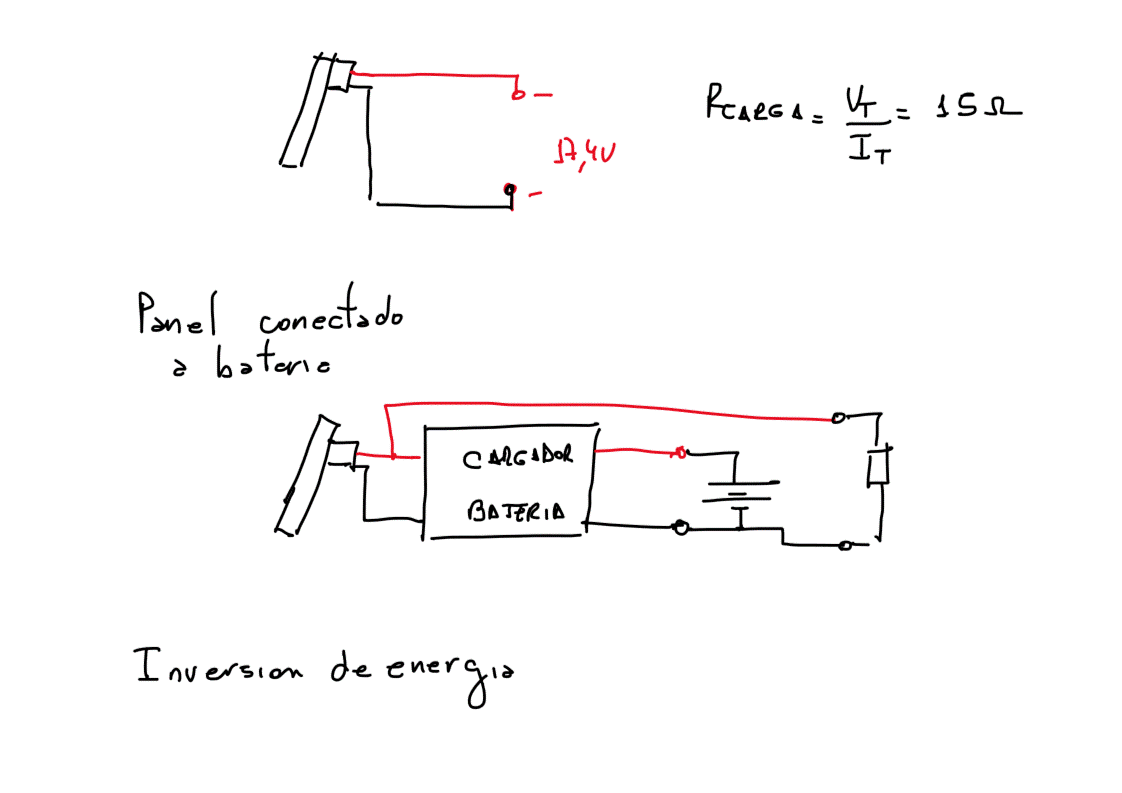 RCARGA = VT / IT = 15 Ω
17,4V
Panel conectado
a bateria
CARGADOR
BATERIA
Inversion de energia